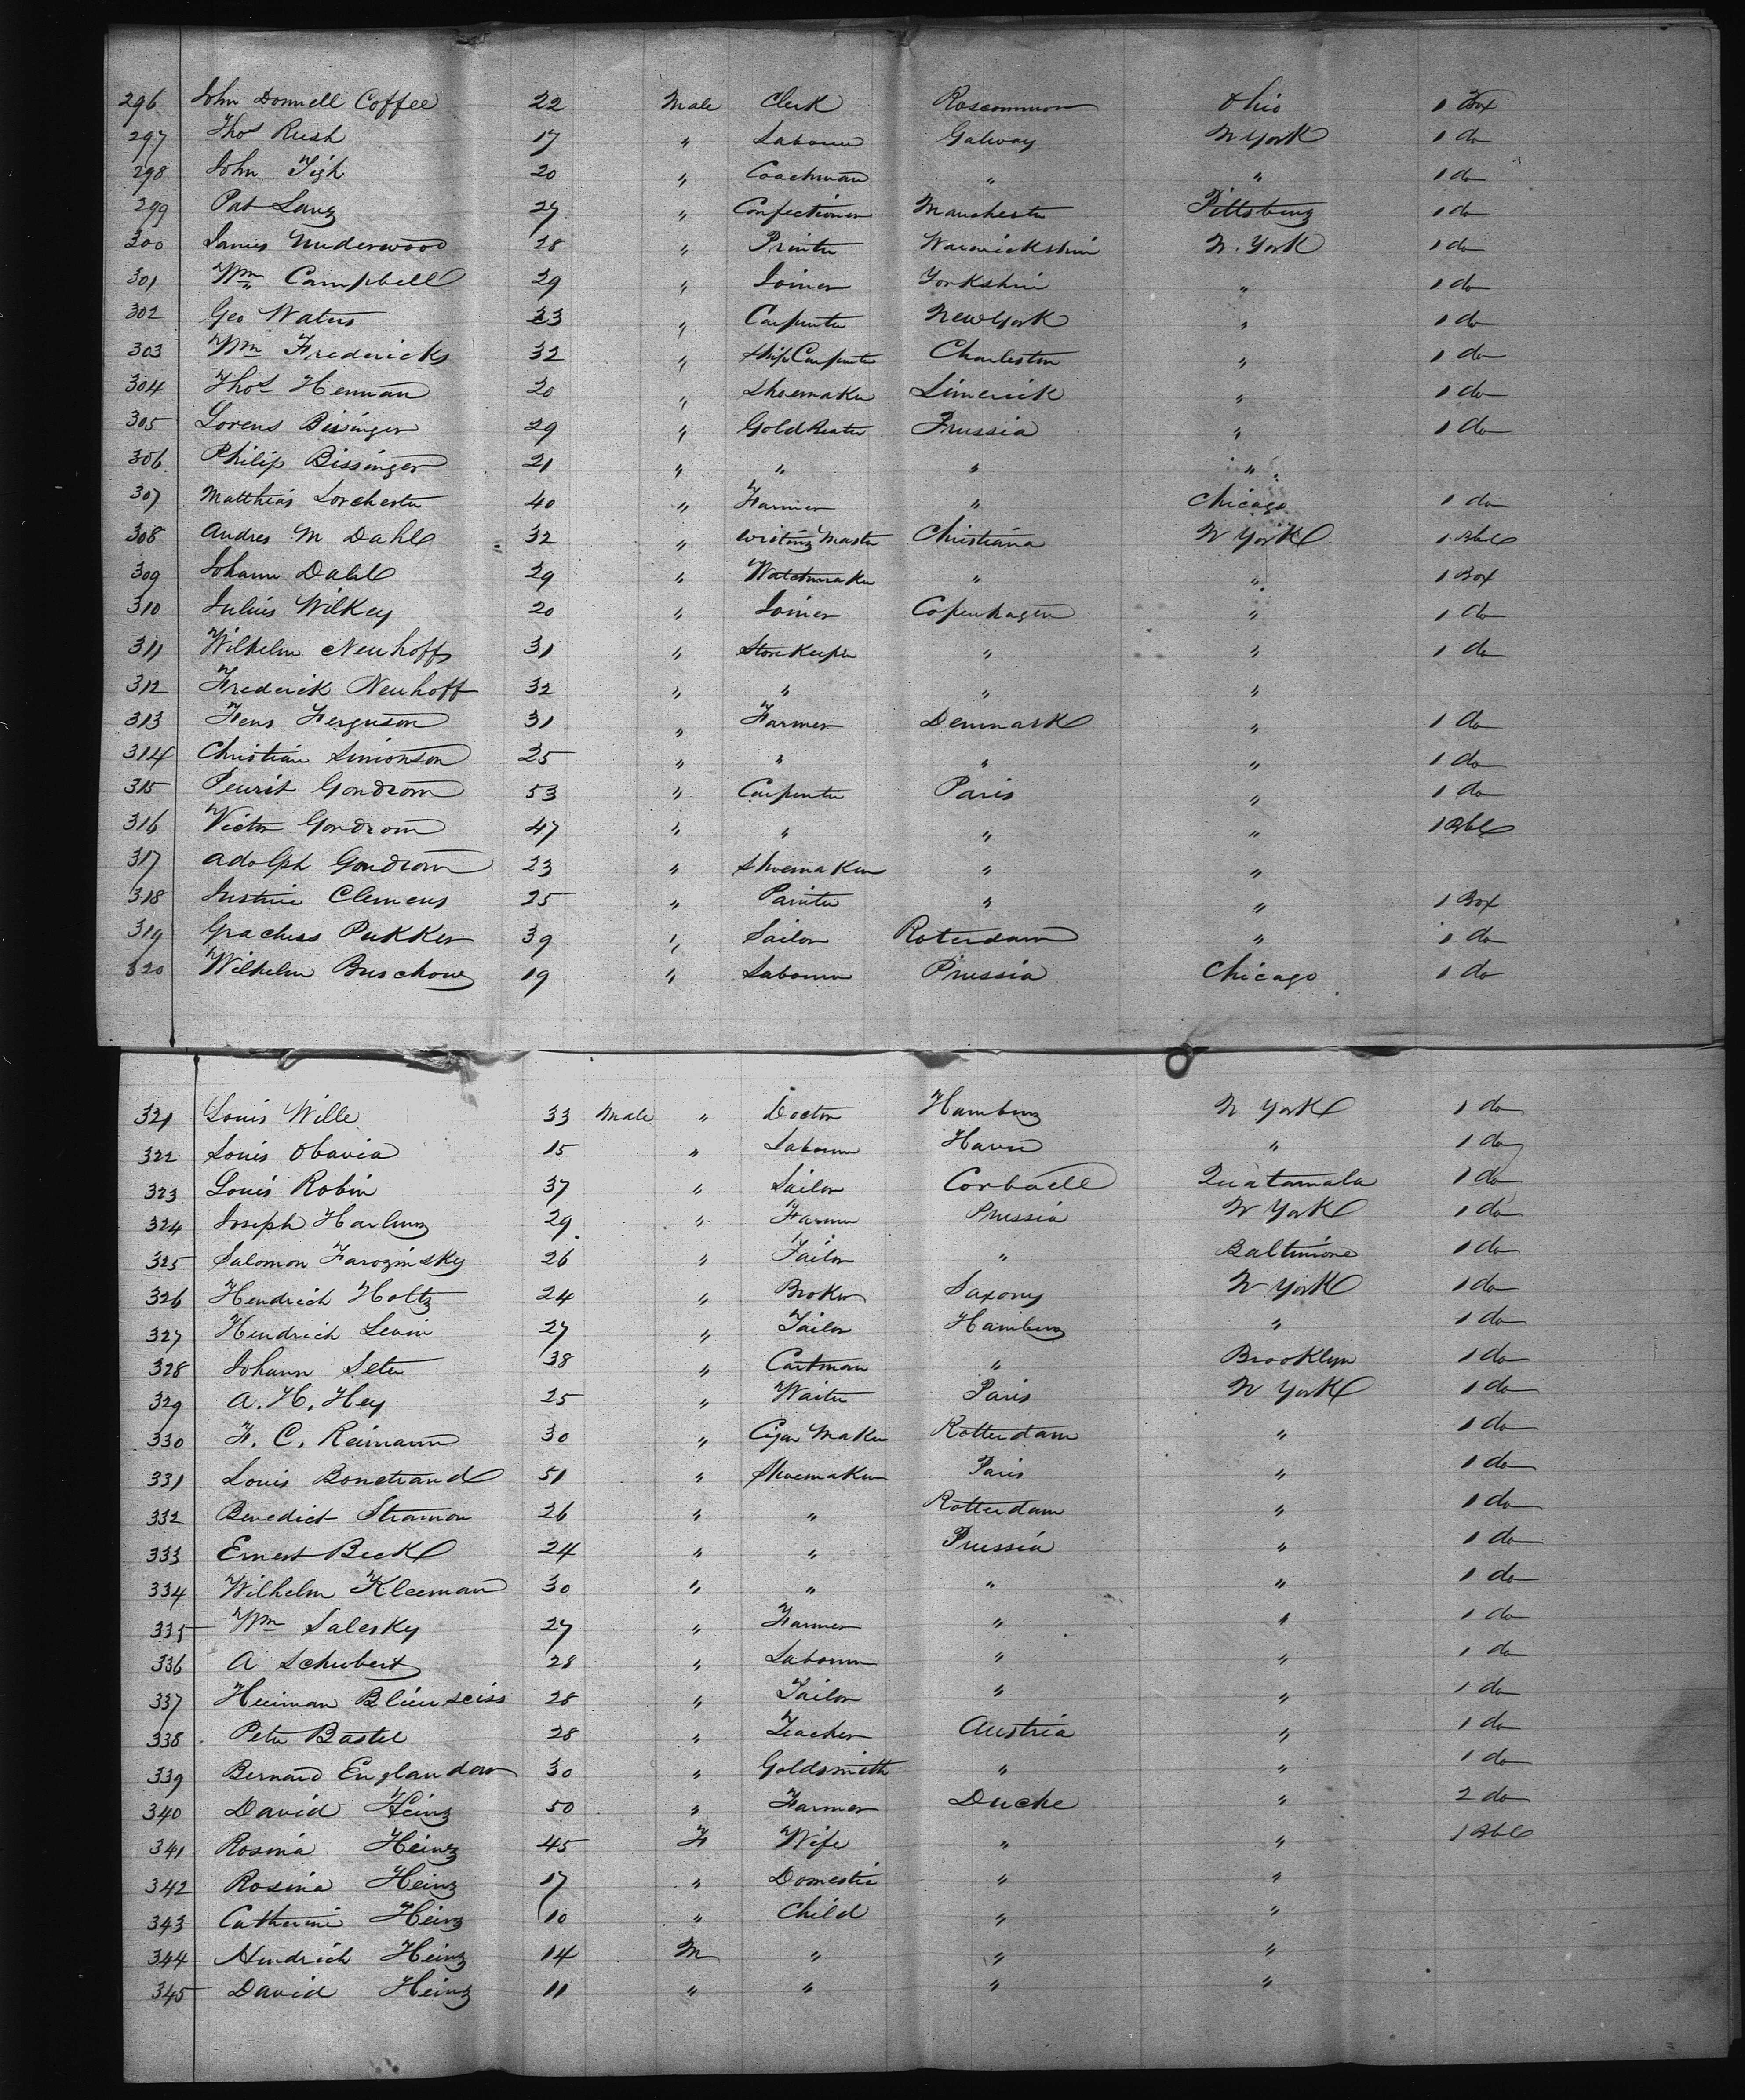 296 John Donnell Coffee 22 Male Clerk Roscommon Ohio 1 Box
297 Thos Rush 17 " Labourer Galway N York 1 do
298 John Tigh 20 " Coachman " " 1 do
299 Pat Lang 27 " Confectioner Manchester Pittsburg 1 do
300 James Underwood 28 " Printer Warwickshire N. York 1 do
301 Wm Campbell 29 " Joiner Yorkshire " 1 do
302 Geo Waters 33 " Carpenter New York " 1 do
303 Wm Fredericks 32 " Ship Carpenter Charleston " 1 do
304 Thos Hennan 20 " Shoemaker Limerick " 1 do
305 Lorens Bissinger 29 " Gold Beater Prussia " 1 do
306 Philip Bissinger 21 " " " "
307 Matthias Lorchester 40 " Farmer " Chicago 1 do
308 Andres M Dahl 32 " Writing Master Christiana N York 1 Bbl
309 Johann Dahl 29 " Watchmaker " " 1 Box
310 Julius Wilkey 20 " Joiner Copenhagen " 1 do
311 Wilhelm Neuhoff 31 " Store Keeper " " 1 do
312 Frederick Neuhoff 32 " " " "
313 Jens Ferguson 31 " Farmer Denmark " 1 do
314 Christian Simonson 25 " " " " 1 do
315 Gondrom 53 " Carpenter Paris " 1 do
316 Victor Gondrom 47 " " " " 1 Bbl
317 Adolph Gondrom 23 " Shoemaker " "
318 Justine Clemens 25 " Painter " " 1 Box
319 Grachus Pukker 39 " Sailor Roterdam " 1 do
320 Wilhelm Buschow 19 " Labourer Prussia Chicago 1 do
321 Louis Wille 33 Male " Doctor Hamburg N York 1 do
322 Louis Obavia 15 " Labourer Havre " 1 do
323 Louis Robin 37 " Sailor Corbaell Quatamala 1 do
324 Joseph Harling 29 " Farmer Prussia N York 1 do
325 Salomon Faroginsky 26 " Tailor " Baltimore 1 do
326 Hendrich Holtz 24 " Broker Saxony N York 1 do
327 Hendrich Levin 27 " Tailor Hamburg " 1 do
328 Johann Seter 38 " Cartman " Brooklyn 1 do
329 A. H. Hey 25 " Waiter Paris N York 1 do
330 F. C. Reimann 30 " Cigar Maker Rotterdam " 1 do
331 Louis Bonetrand 51 " Shoemaker Paris " 1 do
332 Benedict Straman 26 " " Rotterdam " 1 do
333 Ernest Beckl 24 " " Prussia " 1 do
334 Wilhelm Kleeman 30 " " " " 1 do
335 Wm Salesky 27 " Farmer " " 1 do
336 A Schubert 28 " Labourer " " 1 do
337 Heiman 28 " Tailor " " 1 do
338 Peter Bastel 28 " Teacher Austria " 1 do
339 Bernard Englander 30 " Goldsmith " " 1 do
340 David Heinz 50 " Farmer Duche " 2 do
341 Rosina Heinz 45 F Wife " " 1 Bbl
342 Rosina Heinz 17 " Domestic " "
343 Catherine Heinz 10 " Child " "
344 Hendrich Heinz 14 M " " "
345 David Heinz 11 " " " "